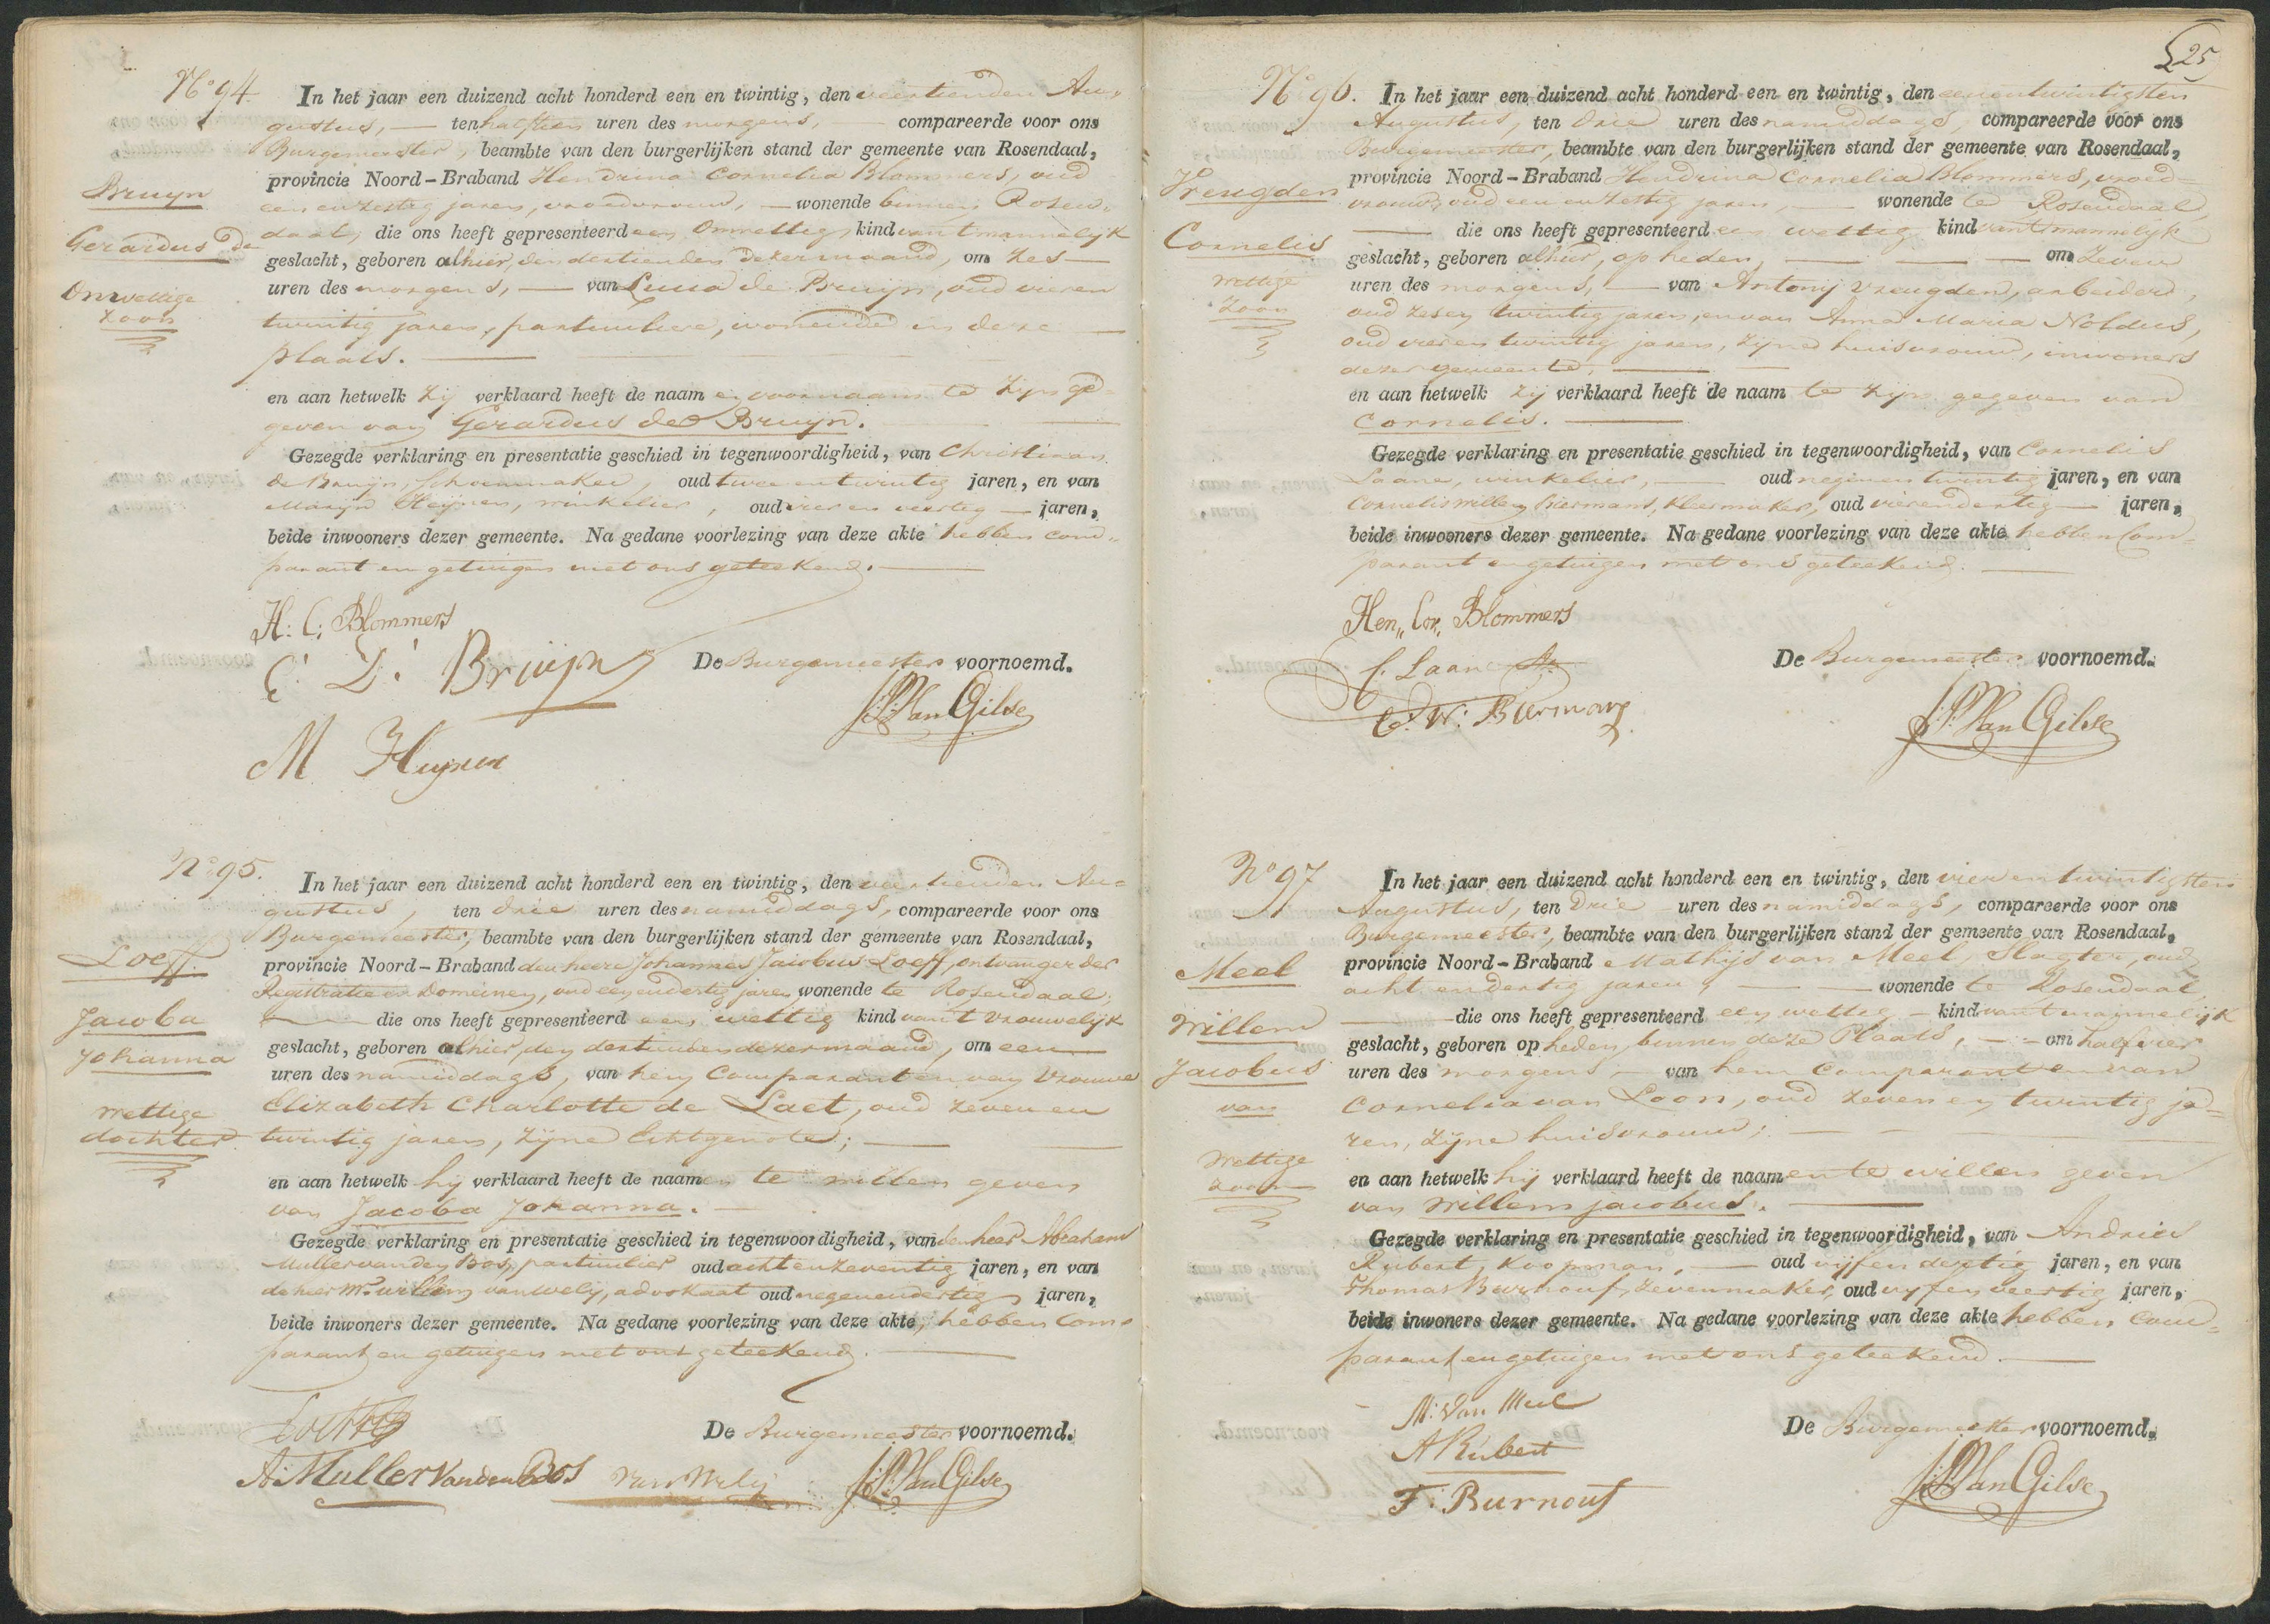 N.o 94.
In het jaar een duizend acht honderd een en twintig, den veertienden Au-
gustus, — ten half tien uren des morgens, — compareerde voor ons
Burgemeester, beambte van den burgerlijken stand der gemeente van Rosendaal,
provincie Noord-Braband Hendrina Cornelia Blommers, oud
een en zestig jaren, vroedvrouw, — wonende binnen Rosen-
daal, die ons heeft gepresenteerd een Onwettig kind van t mannelijk
geslacht, geboren alhier, den dertienden dezer maand, om zes —
uren des morgens, — van Lucia de Bruijn, oud vier en
twintig jaren, particuliere, wonende in deze —
plaats. —
en aan hetwelk zij verklaard heeft de naam en voornaam te zijn ge-
geven van Gerardus de Bruijn.
Gezegde verklaring en presentatie geschied in tegenwoordigheid, van Christiaan
de Bruijn, schoenmaker, oud twee en twintig jaren, en van
Marijn Heijnen, winkelier, oud vier en veertig — jaren,
beide inwooners dezer gemeente. Na gedane voorlezing van deze akte hebben com-
parant en getuigen met ons geteekend. —
Bruyn
Gerardus de
Onwettige
zoon
H: C: Blommers
C D: Bruijn
M Heijnen
De Burgemeester voornoemd.
J:P: Van Gilse
N.o 95.
In het jaar een duizend acht honderd een en twintig, den veertienden Au-
gustus, ten drie uren des namiddags, compareerde voor ons
Burgemeester, beambte van den burgerlijken stand der gemeente van Rosendaal,
provincie Noord-Braband den heere Johannes Jacobus Loeff, ontvanger der
Registratie en Domeinen, oud een en dertig jaren wonende te Rosendaal,
— die ons heeft gepresenteerd een wettig kind van t vrouwelijk
geslacht, geboren alhier, den dertienden dezer maand, om een —
uren des namiddags, van hem Comparant en van Vrouwe
Elizabeth Charlotte de Laet, oud zeven en
twintig jaren, zijne Echtgenote; —
en aan hetwelk hij verklaard heeft de naamen te willen geven
van Jacoba Johanna. —
Gezegde verklaring en presentatie geschied in tegenwoordigheid, van den heer Abraham
Muller van den Bos, particulier oud acht en zeventig jaren, en van
de heer Mr. Willem van Welij, advokaat oud negen en dertig jaren,
beide inwoners dezer gemeente. Na gedane voorlezing van deze akte, hebben Com-
parant en getuigen met ons geteekend. —
Loeff.
Jacoba
Johanna
Wettige
dochter
Loeff
A: Muller Vanden Bos
Van Welij
De Burgemeester voornoemd.
J:P: Van Gilse
25
N.o 96.
In het jaar een duizend acht honderd een en twintig, den eenentwintigsten
Augustus, ten drie uren des namiddags, compareerde voor ons
Burgemeester, beambte van den burgerlijken stand der gemeente van Rosendaal,
provincie Noord-Braband Hendrina Cornelia Blommers, vroed-
vrouw, oud een en zestig jaren, — wonende te Rosendaal,
— die ons heeft gepresenteerd een wettig kind van t mannelijk
geslacht, geboren alhier, op heden, — om zeven
uren des morgens, — van Antonij Vreugden, arbeider,
oud zes en twintig jaren, en van Anna Maria Noldus,
oud vier en twintig jaren, zijne huisvrouw, inwoners
dezer gemeente, —
en aan hetwelk zij verklaard heeft de naam te zijn gegeven van
Cornelis. —
Gezegde verklaring en presentatie geschied in tegenwoordigheid, van Cornelis
Laane, winkelier, — oud negen en twintig jaren, en van
Cornelis Willem Biermans, kleermaker, oud vier en dertig — jaren,
beide inwooners dezer gemeente. Na gedane voorlezing van deze akte hebben Com-
parant en getuigen met ons geteekend. —
Vreugden
Cornelis
Wettige
Zoon
Hen,, Cor,, Blommers
C. Laane
C. W: Biermans
De Burgemeester voornoemd.
J:P: Van Gilse
N.o 97
In het jaar een duizend acht honderd een en twintig, den vier en twintigsten
Augustus, ten drie uren des namiddags, compareerde voor ons
Burgemeester, beambte van den burgerlijken stand der gemeente van Rosendaal,
provincie Noord-Braband Mathijs van Meel, Slagter, oud
acht en dertig jaren, — wonende te Rosendaal,
— die ons heeft gepresenteerd een wettig — kind van t mannelijk
geslacht, geboren op heden, binnen deze Plaats, — om half vier
uren des morgens, — van hem Comparant en van
Cornelia van Loon, oud zeven en twintig ja-
ren, zijne huisvrouw; —
en aan hetwelk hij verklaard heeft de naamen te willen geven
van Willem Jacobus. —
Gezegde verklaring en presentatie geschied in tegenwoordigheid, van Andries
Rubert, Koopman, — oud vijf en dertig jaren, en van
Thomas Burnouf, Zevenmaker, oud vijf en veertig jaren,
beide inwoners dezer gemeente. Na gedane voorlezing van deze akte hebben Com-
parant en getuigen met ons geteekend. —
Meel
Willem
Jacobus
van
Wettige
zoon
M: Van Meel
A Rubert
T: Burnouf
De Burgemeester voornoemd.
J:P: Van Gilse